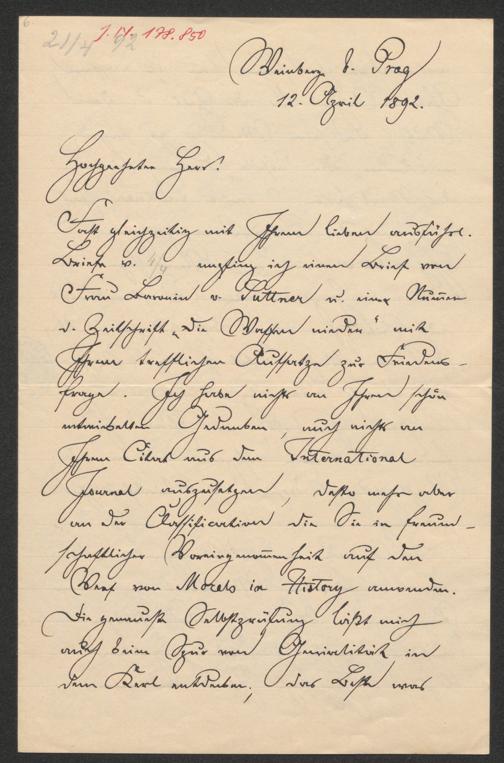 21/4 92
J. N. 178.850
Weinberge b. Prag
12. April 1892.
Hochgeehrter Herr!
Fast gleichzeitig mit Ihrem lieben ausführl.
Briefe v. 4/4 empfing ich einen Brief von
Frau Baronin v. Suttner u. eine Nummer
d. Zeitschrift „Die Waffen nieder" mit
Ihrem trefflichen Aufsatze zur Friedens-
frage. Ich habe nichts an Ihren schön
entwickelten Gedanken, auch nichts an
Ihrem Citat aus dem International
Journal auszusetzen, desto mehr aber
an der Classification die Sie in freund-
schaftlicher Voreingenommenheit auf den
Verf von Morals in History anwenden.
Die genaueste Selbstprüfung läßt mich
auch keine Spur von Genialität in
dem Kerl entdecken; das Beste was